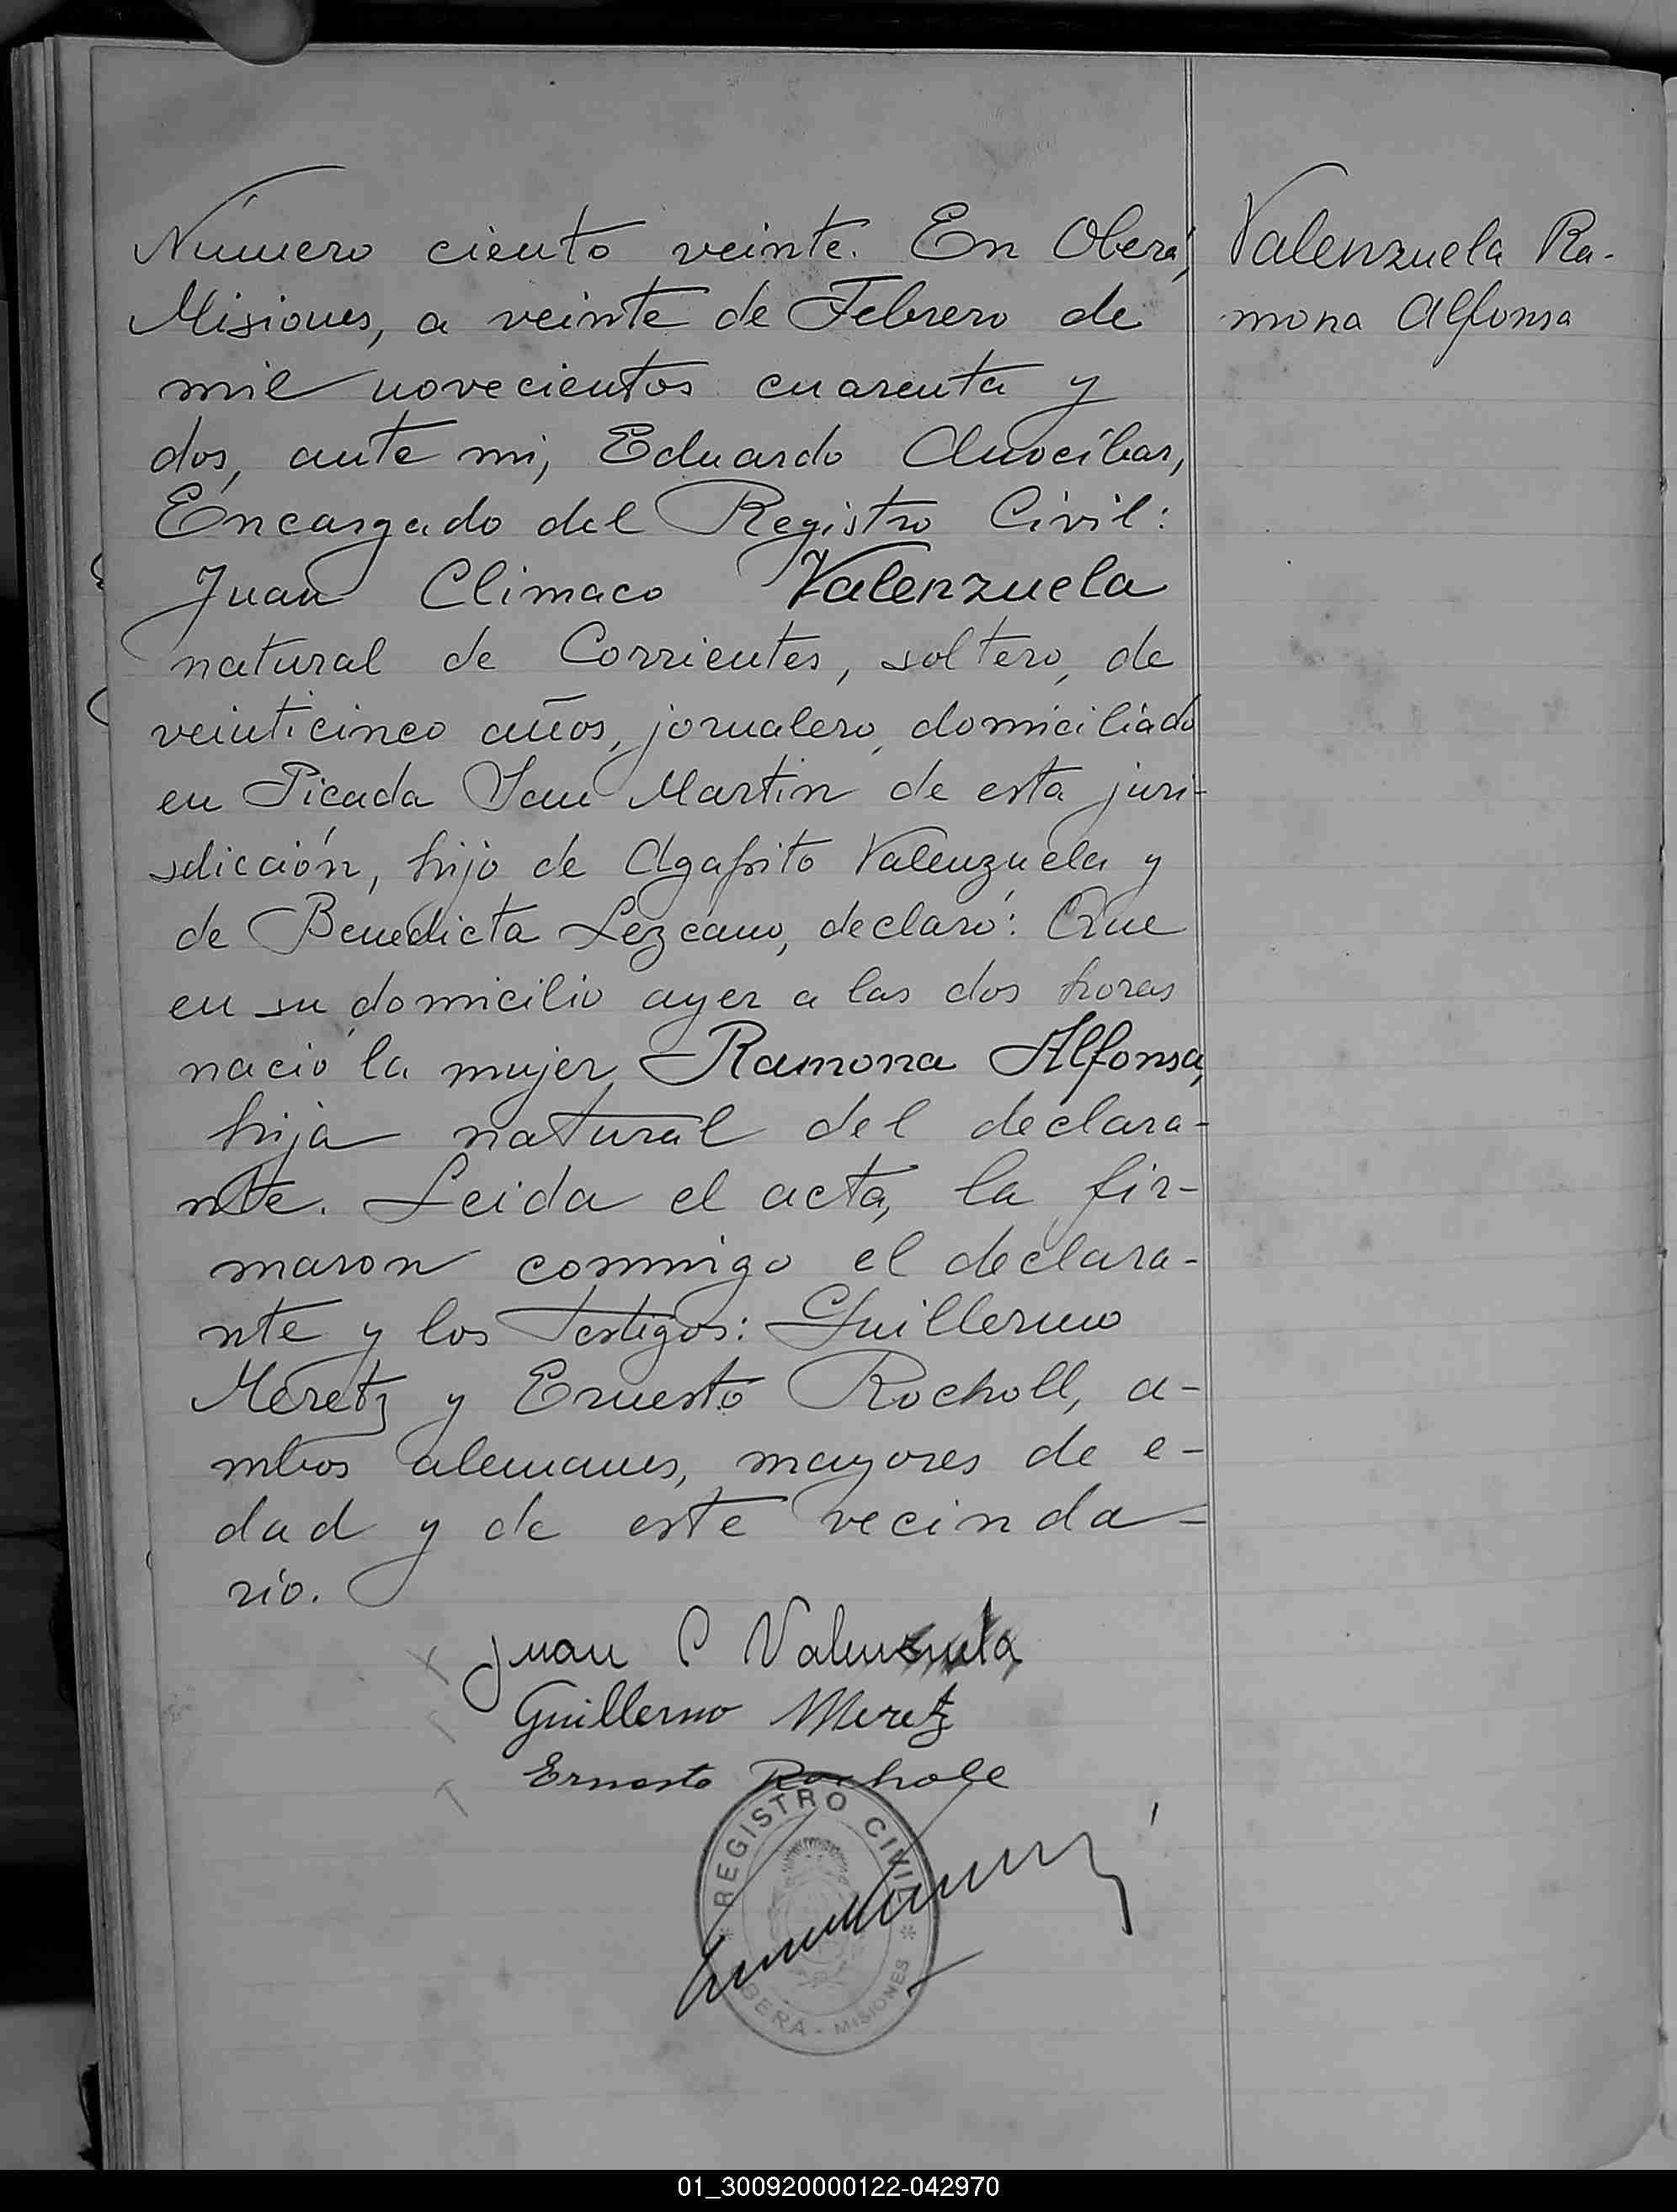 Número ciento veinte. En Oberá,
Misiones, a veinte de Febrero de
mil novecientos cuarenta y
dos, ante mi, Eduardo Anocíbar,
Encargado del Registro Civil:
Juan Climaco Valenzuela
natural de Corrientes, soltero, de
veinticinco años, jornalero, domiciliado
en Picada San Martin de esta juri-
sdicción, hijo de Agapito Valenzuela y
de Benedicta Lezcano, declaró: Que
en su domicilio ayer a las dos horas
nació la mujer, Ramona Alfonsa,
hija natural del declara-
nte. Leida el acta, la fir-
maron conmigo el declara-
nte y los testigos: Guillermo
Meretz y Ernesto Rocholl, a-
mbos alemanes, mayores de e-
dad y de este vecinda-
rio.
Valenzuela Ra-
mona Alfonsa
Juan C Valenzuela
Guillermo Meretz
Ernesto Rocholl
REGISTRO CIVIL
OBERÁ - MISIONES
01_300920000122-042970